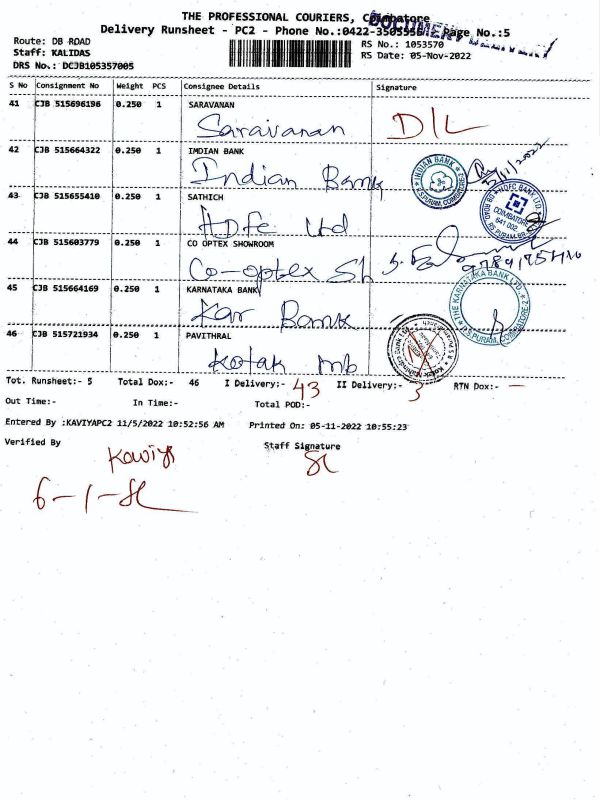 THE PROFESSIONAL COURIERS, Coimbatore
DOCUMENT DELIVERY
Delivery Runsheet - PC2 - Phone No.:0422-3505956 Page No.:5
Route: DB ROAD
RS No.: 1053570
Staff: KALIDAS
RS Date: 05-Nov-2022
DRS No.: DCJB105357005
S No Consignment No Weight PCS Consignee Details Signature
41 CJB 515696196 0.250 1 SARAVANAN
Saravanan D/L
42 CJB 515664322 0.250 1 IMDIAN BANK
Indian Bank
INDIAN BANK
R.S.PURAM, COIMBATORE
5/11/2022
43 CJB 515655410 0.250 1 SATHICH
HDFC Ltd
HDFC BANK LTD.
COIMBATORE
641 002
44 CJB 515603779 0.250 1 CO OPTEX SHOWROOM
Co-optex Sh
45 CJB 515664169 0.250 1 KARNATAKA BANK
Kar Bank
THE KARNATAKA BANK LTD.
R.S.PURAM, COIMBATORE-2
46 CJB 515721934 0.250 1 PAVITHRAL
Kotak mb
Tot. Runsheet:- 5 Total Dox:- 46 I Delivery:- 43 II Delivery:- 3 RTN Dox:- —
Out Time:- In Time:- Total POD:-
Entered By :KAVIYAPC2 11/5/2022 10:52:56 AM Printed On: 05-11-2022 10:55:23
Verified By Staff Signature
Kaviya
6-1-